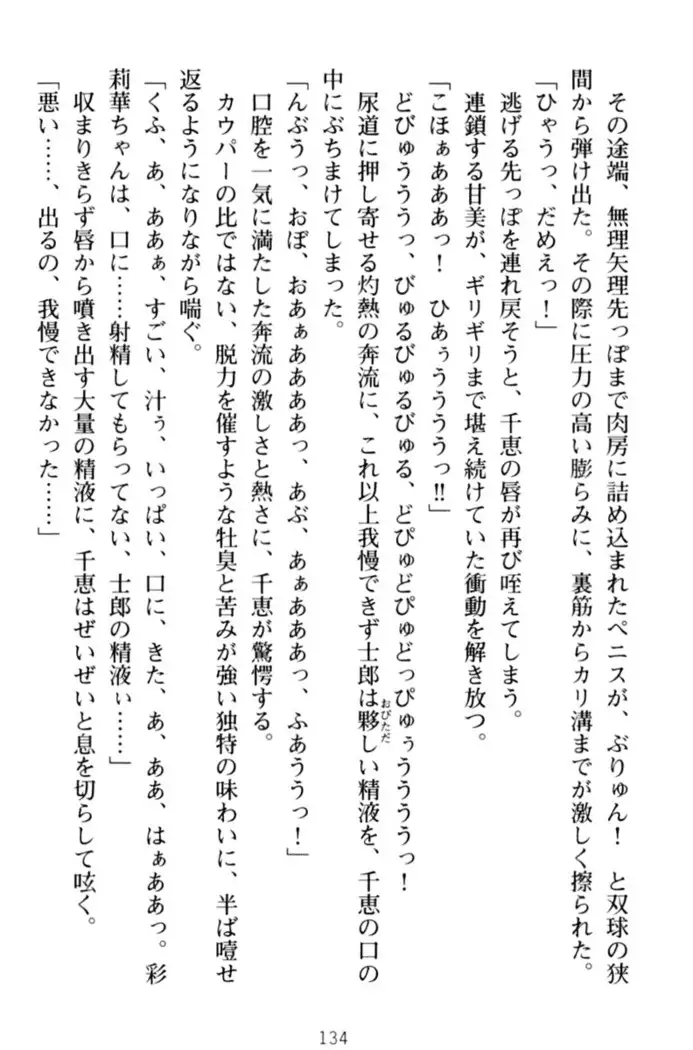 その途端、無理矢理先っぽまで肉房に詰め込まれたペニスが、ぶりゅん！　と双球の狭
間から弾け出た。その際に圧力の高い膨らみに、裏筋からカリ溝までが激しく擦られた。
「ひゃうっ、だめえっ！」
逃げる先っぽを連れ戻そうと、千恵の唇が再び咥えてしまう。
連鎖する甘美が、ギリギリまで堪え続けていた衝動を解き放つ。
「こほぁあああっ！　ひあぅうううっ‼」
どびゅうううっ、びゅるびゅるびゅる、どぴゅどぴゅどっぴゅぅううううっ！
尿道に押し寄せる灼熱の奔流に、これ以上我慢できず士郎は夥しい精液を、千恵の口の
おびただ
中にぶちまけてしまった。
「んぶうっ、おぼ、おあぁああああっ、あぶ、あぁああああっ、ふあううっ！」
口腔を一気に満たした奔流の激しさと熱さに、千恵が驚愕する。
カウパーの比ではない、脱力を催すような牡臭と苦みが強い独特の味わいに、半ば噎せ
返るようになりながら喘ぐ。
「くふ、あ、ああぁ、すごい、汁ぅ、いっぱい、口に、きた、あ、ああ、はぁああっ。彩
莉華ちゃんは、口に……射精してもらってない、士郎の精液ぃ……」
収まりきらず唇から噴き出す大量の精液に、千恵はぜいぜいと息を切らして呟く。
「悪い……、出るの、我慢できなかった……」
134